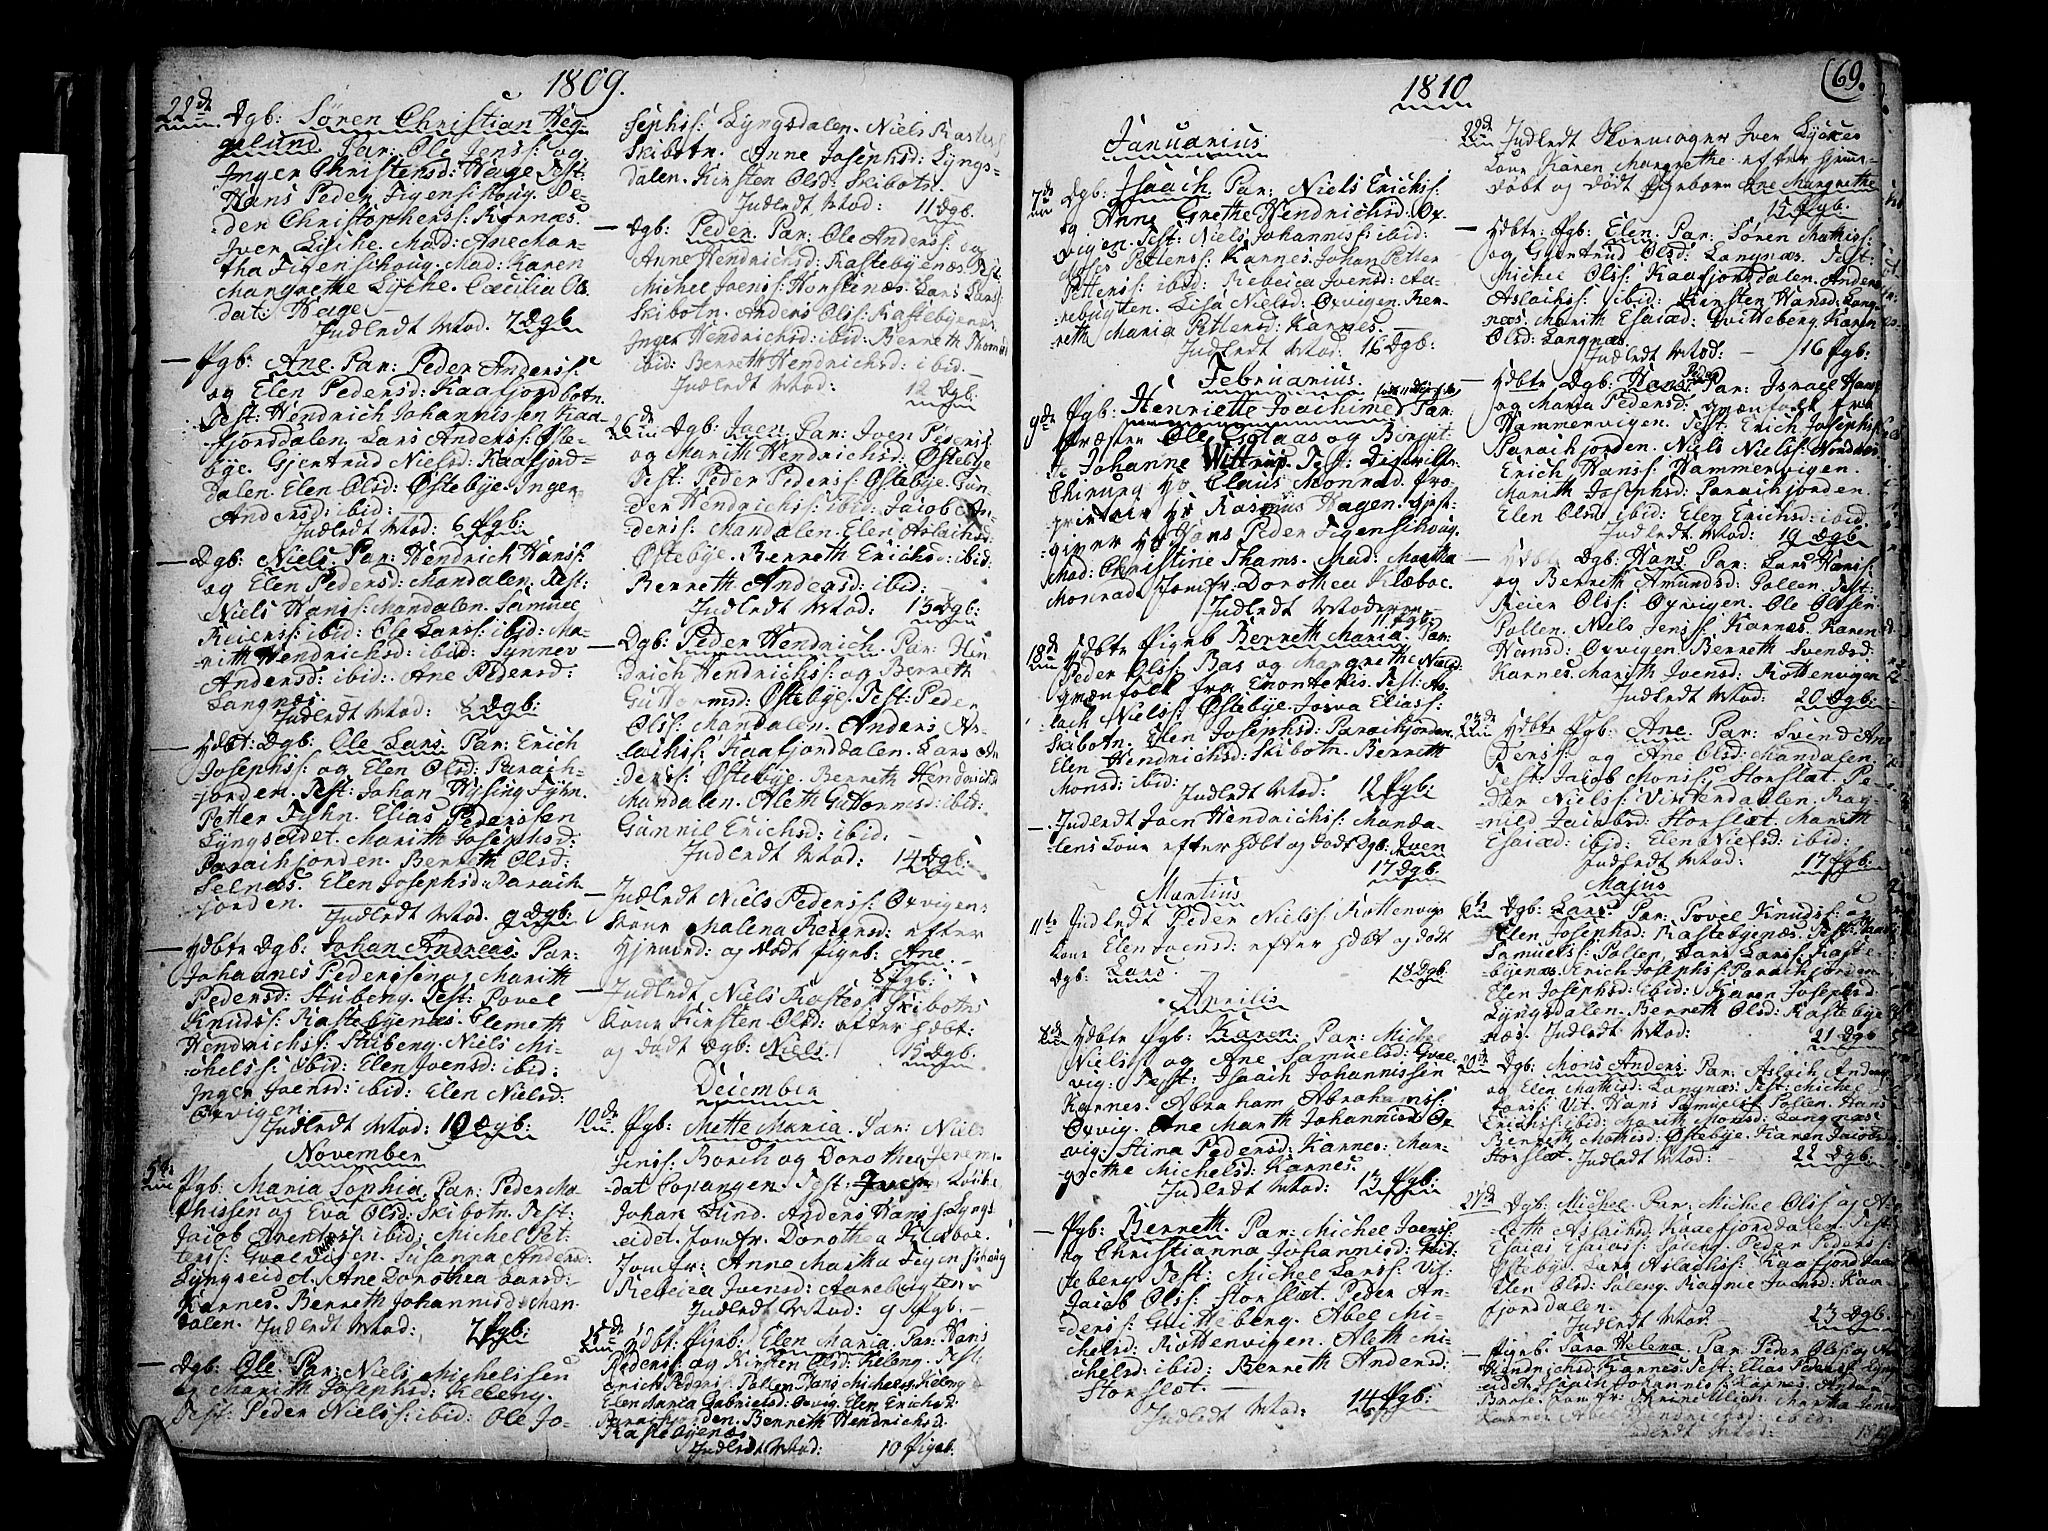 1809.
22de Dgb: Søren Christian Heg-
gelund Par: Ole Jenss: og
Inger Christensd: Hage Test:
Hans Peder Figenschoug. Pe-
der Christophers: Karnæs.
Iver Lyche. Mad: Ane Mar-
tha Figenschoug. Mad: Karen
Margrethe Lyche. Cæcilia Ols
dat: Hage
Indledt Mod. 7 Dgb
— Pgb: Ane. Par: Peder Anderss:
og Elen Pedersd: Kaafjordbotn.
Test: Hendrich Johannissen Kaa
fjorddalen. Lars Anderss: Øste-
bye. Gjertrud Nielsd: Kaafjord-
dalen. Elen Olsd: Østebye. Inger
Andersd: ibid:
Indledt Mod: 6 Pgb:
— Dgb: Niels. Par: Hendrich Hanss:
og Elen Pedersd: Mandalen. Test:
Niels Hanss: Mandalen. Samuel
Reierss: ibid: Ole Larss: ibid: Ma-
rith Hendrichsd: ibid: Synnev
Andersd: ibid: Ane Pedersd:
Langnæs
Indledt Mod: 8 Dgb:
— hdbt: Dgb: Ole Lars Par: Erich
Josephss: og Elen Olsd: Parach-
jorden. Test: Johan Hysing Fyhn.
Petter Fyhn. Elias Pederssen
Lyngseidet. Marith Josephsd:
Parachjorden. Berreth Olsd:
Selnæs. Elen Josephsd: Parach
jorden.
Indledt Mod. 9 Dgb:
— hdbte Dgb: Johan Andreas. Par:
Johannes Pederssen og Marith
Pedersd: Stuberg. Test: Povel
Knudss: Rastebyenæs. Clemeth
Hendrichss: Stuberg. Niels Mi-
chelss: ibid: Elen Joensd: ibid:
Inger Joensd: ibid: Elen Nielsd:
Oxvigen.
Indledt Mod: 10 Dgb:
November
5te Pgb: Maria Sophia. Par: Peder Ma-
thissen og Eva Olsd: Skibotn. Test:
Jacob Arentss: ibid: Michel Pet-
terss: Susanna Andersd:
Lyngseidet. Ane Dorothea Larsd:
Karnes. Berreth Johannisd: Man
dalen.
Indledt Mod: 7 Pgb:
— Dgb: Ole. Par: Niels Michelssen
og Marith Josephsd: Keleng.
Test: Peder Nielss: ibid: Ole Jo-
sephss: Lyngsdalen. Niels Rasters
Skibotn. Anne Josephsd: Lyngs-
dalen. Kirsten Olsd: Skibotn.
Indledt Mod: 11 Dgb.
— Dgb: Peder. Par: Ole Anderss: og
Anne Hendrichsd: Rastebyenæs. Test:
Michel Joenss: Horsenæs. Lars Larss:
Skibotn. Anders Olss: Rastebyenæs
Inger Hendrichsd: ibid: Berreth Thomæd
ibid: Berreth Hendrichsd: ibid:
Indledt Mod: 12 Dgb.
26de Dgb: Joen. Par: Joen Pederss
og Marith Hendrichsd: Østebye
Test: Peder Pederss: Østebye. Gun
der Hendrichss: ibid: Jacob An-
derss: Mandalen. Elen Aslachsd:
Østebye. Berreth Erichsd: ibid:
Berreth Andersd: ibid:
Indledt Mod: 13 Dgb:
— Dgb: Peder Hendrich. Par: Hen
drich Hendrichss: og Berreth
Guttormsd: Østebye. Test: Peder
Olss: Mandalen. Anders As-
lachss: Kaafjorddalen. Lars An
derss: Østebye. Berreth Hendrichsd
Mandalen. Aleth Guttormsd: ibid:
Gunnil Erichsd: ibid.
Indledt Mod: 14 Dgb:
— Indledt Niels Pederss: Oxvigens
kone Malena Reiersd: efter
hjemd: og død Pigeb: Ane.
8 Pgb:
— Indledt Niels Rasters Skibotns
kone Kirsten Olsd: efter hdbt:
og dødt Dgb: Niels.
15 Dgb.
December
10de Pgb: Mette Maria. Par: Niels
Jenss: Borch og Dorothea Jeremi
dat Copangen. Test:
Johan Lund. Anders Hanss: Lyngs
eidet. Jomfr: Dorothea Klæboe.
Jomfr: Anne Martha Figenschoug
Rebecca Joensd: Aarebugten
Indledt Mod: 9 Pgb.
25de hdbt: Pigeb: Elen Maria. Par: Hans
Pederss: og Kirsten Olsd: Keleng. Test:
Erich Pederss: Pollen. Hans Michelss: Keleng
Elen Maria Gabrielsd: Oxvig. Elen Erichsd
Parachjorden. Berreth Hendrichsd
Rastebyenæs
Indledt Mod: 10 Pigeb.
1810
69.
Januarius
7de Dgb: Isaach Par: Niels Erichss:
og Anne Grethe Hendrichsd: Ox-
vigen. Test: Niels Johanniss: ibid:
Petterss: Karnes. Johan Petter
Petterss: ibid: Rebecca Joensd: Aa-
rebugten. Lisa Nielsd: Oxvigen. Ber-
reth Maria Pettersd: Karnes.
Indledt Mod: 16 Dgb:
Februarius.
9de Pgb: Henriette Joachimed Par:
Præsten Ole Esolaas og Bergit-
te Johanne Wittrup. Test: Districts-
Chirurg Hr Claus Monrad. Pro-
prietair Hr Rasmus Hagen. Gjest-
giver Hr Hans Peder Figenschoug.
Mad: Christine Thams. Mad: Martha
Monrad. Jomfr: Dorothea Klæboe.
Indledt Moderen
11 Pgb:
18de hdbte Pigeb Berreth Maria. Par:
Peder Olss: Bas og Margrethe Nielsd:
grænfolk fra Enontekis. Test: As-
lach Nielss: Østebye. Josva Eliass:
Skibotn. Elen Josephsd: Parachjorden.
Elen Hendrichsd: Skibotn. Berreth
Monsd: ibid:
Indledt Mod: 12 Pgb:
— Indledt Joen Hendrichss: Manda-
lens kone efter hdbt og dødt Dgb: Joen
17 Dgb.
Martius
11te Indledt Peder Nielss: Rottenvigs
kone Elen Joensd: efter hdbt og dødt
Dgb: Lars.
18 Dgb.
Aprilis
8de hdbte Pgb: Karen. Par: Michel
Nielss: og Ane Samuelsd: Qval-
vig: Test: Isaach Johannissen
Karnes. Abraham Abrahamss:
Oxvig. Ane Marth Johannisd: Ox
vig: Stina Pedersd: Karnes: Mar-
grethe Michelsd: Karnes.
Indledt Mod: 13 Pgb:
— Pgb: Berreth. Par: Michel Joenss:
og Christianna Johannisd: Qvit-
teberg. Test: Michel Larss: Vit.
Jacob Olss: Storslæt. Peder An-
derss: Qvitteberg. Abel Mi-
chelsd: Rottenvigen. Aleth Mi-
chelsd: ibid: Berreth Andersd:
Storslæt.
Indledt Mod: 14 Pgb:
22de Indledt Skoemager Iver Lyckes
kone Karen Margrethe efter hjemme-
døbt og dødt Pigebarn Ane Margrethe
15 Pgb.
— hdbte Pgb: Elen. Par: Søren Mathiss:
og Gjertrud Olsd: Langnæs. Test:
Michel Olss: Kaafjorddalen. Anders
Aslachss: ibid: Kirsten Hansd: Lang-
næs. Marith Esaiæd: Qvitteberg. Karen
Olsd: Langnæs.
Indledt Mod: — 16 Pgb:
— hdbte Dgb: Hans Peder Par: Israel Hanss
og Maria Pedersd: grænfolk fra
Hammervigen. Test: Erich Josephss:
Parachjorden. Niels Nielss:
Erich Hanss: Hammervigen.
Marith Josephsd: Parachjorden.
Elen Olsd: ibid: Elen Erichsd: ibid
Indledt Mod: 19 Dgb
— hdbte Dgb: Hans Par: Lars Hanss:
og Berreth Amundsd: Pollen. Test:
Reier Olss: Oxvigen. Ole Olsen
Pollen. Niels Jenss: Karnæs. Karen
Hansd: Oxvigen. Berreth Svendsd:
Karnes. Marith Joensd: Rottenvigen
Indledt Mod: 20 Dgb:
23de hdbte Pgb: Ane. Par: Svend An
derss: og Ane Olsd: Mandalen.
Test: Jacob Monss: Storslæt. Pe-
der Nielss: Vinterdalen. Rag-
nild Jacobsd: Storslæt. Marith
Esaiæd: ibid: Elen Nielsd: ibid:
Indledt Mod: 17 Pgb:
Majus
6te Dgb: Lars. Par: Povel Knudss: og
Elen Josephsd: Rastebyenæs. Test:
Samuelss: Pollen. Lars Larss: Raste-
byenæs. Erich Josephss: Parachjorden
Elen Josephsd: ibid: Karen Josephsd:
Lyngsdalen. Berreth Olsd: Rastebye
næs. Indledt Mod: 21 Dgb
20de Dgb: Mons Anders. Par: Aslach Anderss
og Elen Mathisd: Langnæs. Test: Michel
Larss: Vit. Hans Samuelss: Pollen. Hans
Erichss: ibid: Marith Monsd: Langnæs
Berreth Mathisd: Østebye. Karen Jacobsd
Storslæt. Indledt Mod: 22 Dgb.
27de Dgb: Michel. Par: Michel Olss og A-
leth Aslachsd: Kaafjorddalen. Test:
Esaias Esaiass: Soleng. Peder Pederss:
Østebye. Lars Aslachss: Kaafjorddalen
Elen Olsd: Soleng. Ragnie Joensd: Kaa-
fjorddalen.
Indledt Mod. 23 Dgb.
— Pigeb. Sara Helena. Par: Peder Olss og
Hendrichsd: Karnes. Test: Elias Pederss: Lyngs
eidet. Isaach Johanniss: Karnes.
Karnes. Hendrichsd: ibid:
Indledt Mod: